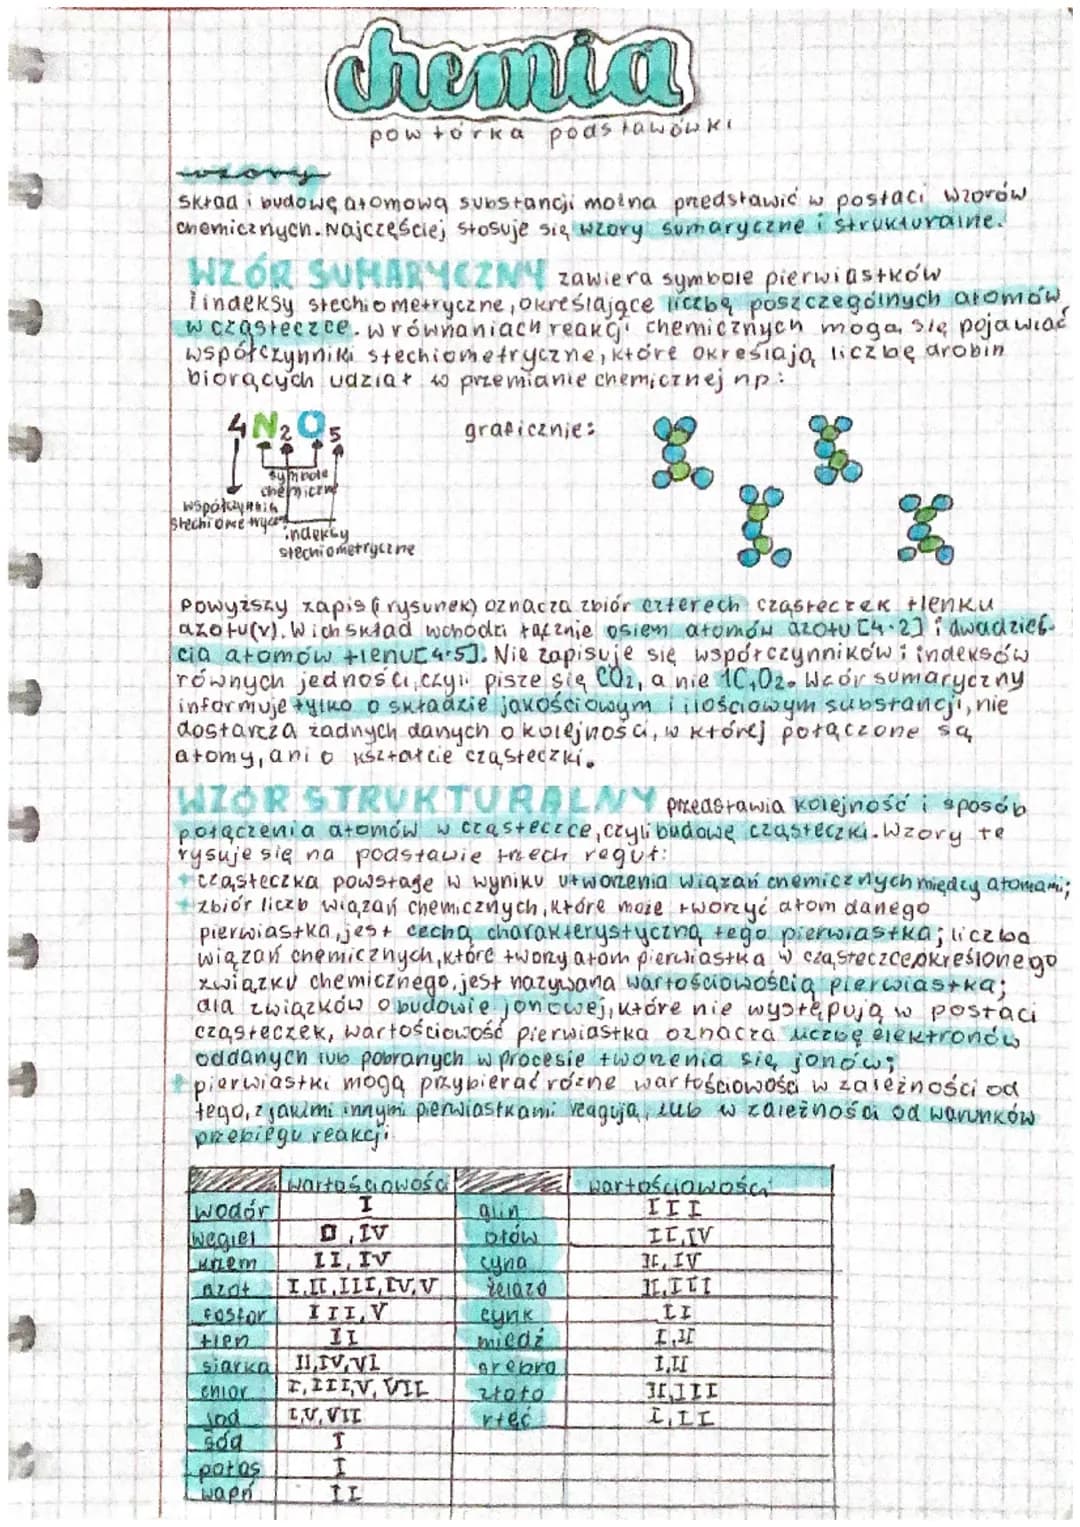 chemia
powtórka podstawówki
wzory
skład i budowę atomową substancji można przedstawić w postaci wzorów
chemicznych. Najczęściej stosuje się wzory sumaryczne i strukturalne.
WZÓR SUMARYCZNY zawiera symbole pierwiastków
i indeksy stechiometryczne, określające liczbę poszczególnych atomów
w cząsteczce. w równaniach reakcji chemicznych mogą się pojawiać
współczynniki stechiometryczne, które określają liczbę drobin
biorących udział w przemianie chemicznej np:
4N2O5 graficznie:
symbole
chemiczne
współczynnik
stechiometryczny
indeksy
stechiometryczne
Powyższy zapis (i rysunek) oznacza zbiór czterech cząsteczek tlenku
azotu(v). W ich skład wchodzi łącznie osiem atomów azotu [4·2] i dwadzieś-
cia atomów tlenu[4·5]. Nie zapisuje się współczynników i indeksów
równych jedności, czyli pisze się CO2, a nie 1C1O2. Wzór sumaryczny
informuje tylko o składzie jakościowym i ilościowym substancji, nie
dostarcza żadnych danych o kolejności, w której połączone są
atomy, ani o kształcie cząsteczki.
WZÓR STRUKTURALNY przedstawia kolejność i sposób
połączenia atomów w cząsteczce, czyli budowę cząsteczki. Wzory te
rysuje się na podstawie trzech reguł:
+ cząsteczka powstaje w wyniku utworzenia wiązań chemicznych między atomami;
+ zbiór liczb wiązań chemicznych, które może tworzyć atom danego
pierwiastka, jest cechą charakterystyczną tego pierwiastka; liczba
wiązań chemicznych, które tworzy atom pierwiastka w cząsteczce określonego
związku chemicznego, jest nazywana wartościowością pierwiastka;
dla związków o budowie jonowej, które nie występują w postaci
cząsteczek, wartościowość pierwiastka oznacza liczbę elektronów
oddanych lub pobranych w procesie tworzenia się jonów;
+ pierwiastki mogą przybierać różne wartościowości w zależności od
tego, z jakimi innymi pierwiastkami reagują, lub w zależności od warunków
przebiegu reakcji
wartościowości wartościowości
wodór I glin III
węgiel II, IV ołów II, IV
krzem II, IV cyna II, IV
azot I, II, III, IV, V żelazo II, III
fosfor III, V cynk II
tlen II miedź I, II
siarka II, IV, VI srebro I, II
chlor I, III, V, VII złoto II, III
jod I, V, VII rtęć I, II
sód I
potas I
wapń II